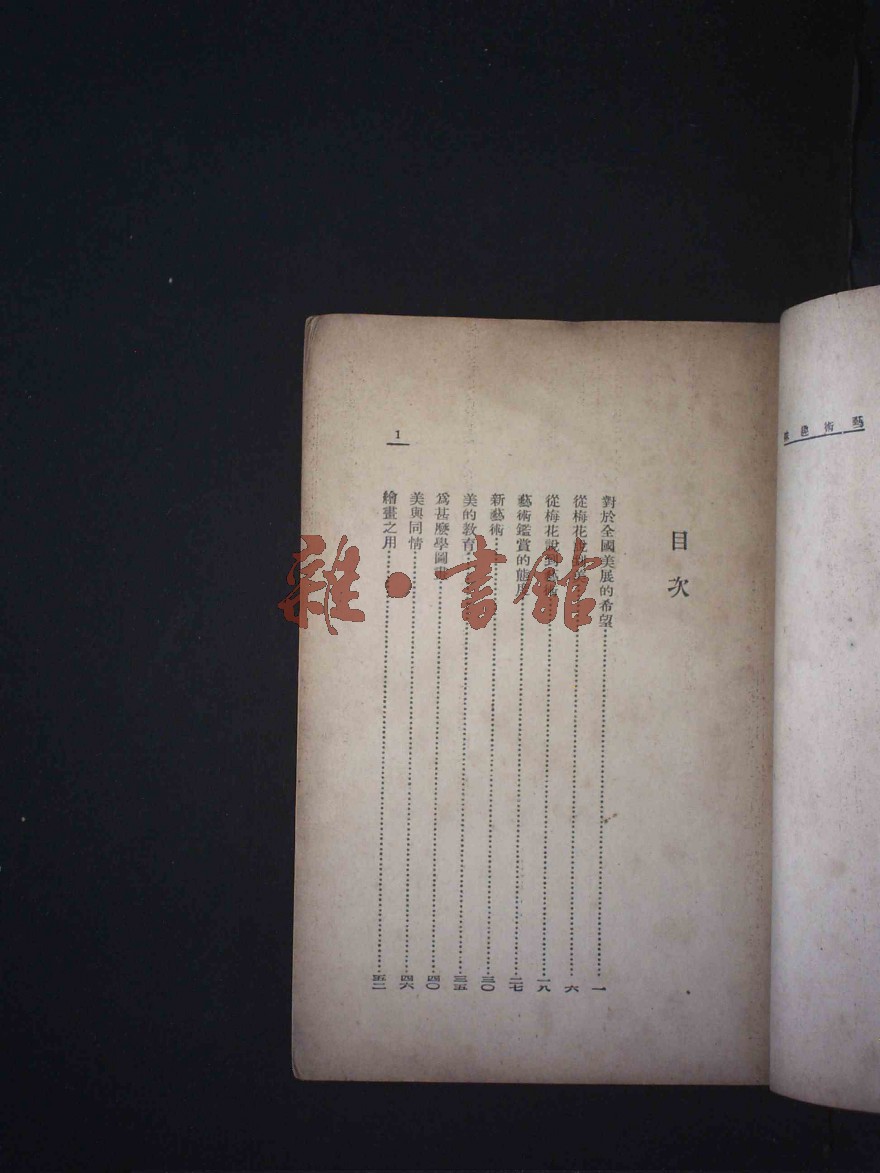 藝術趣
目次
對於全國美展的希望……一
從梅花說到美……六
從梅花說到藝術……一八
藝術鑑賞的態度……二七
新藝術……三〇
美的教育……三五
爲甚麼學圖畫……四〇
美與同情……四六
繪畫之用……五二
1
雜·書館